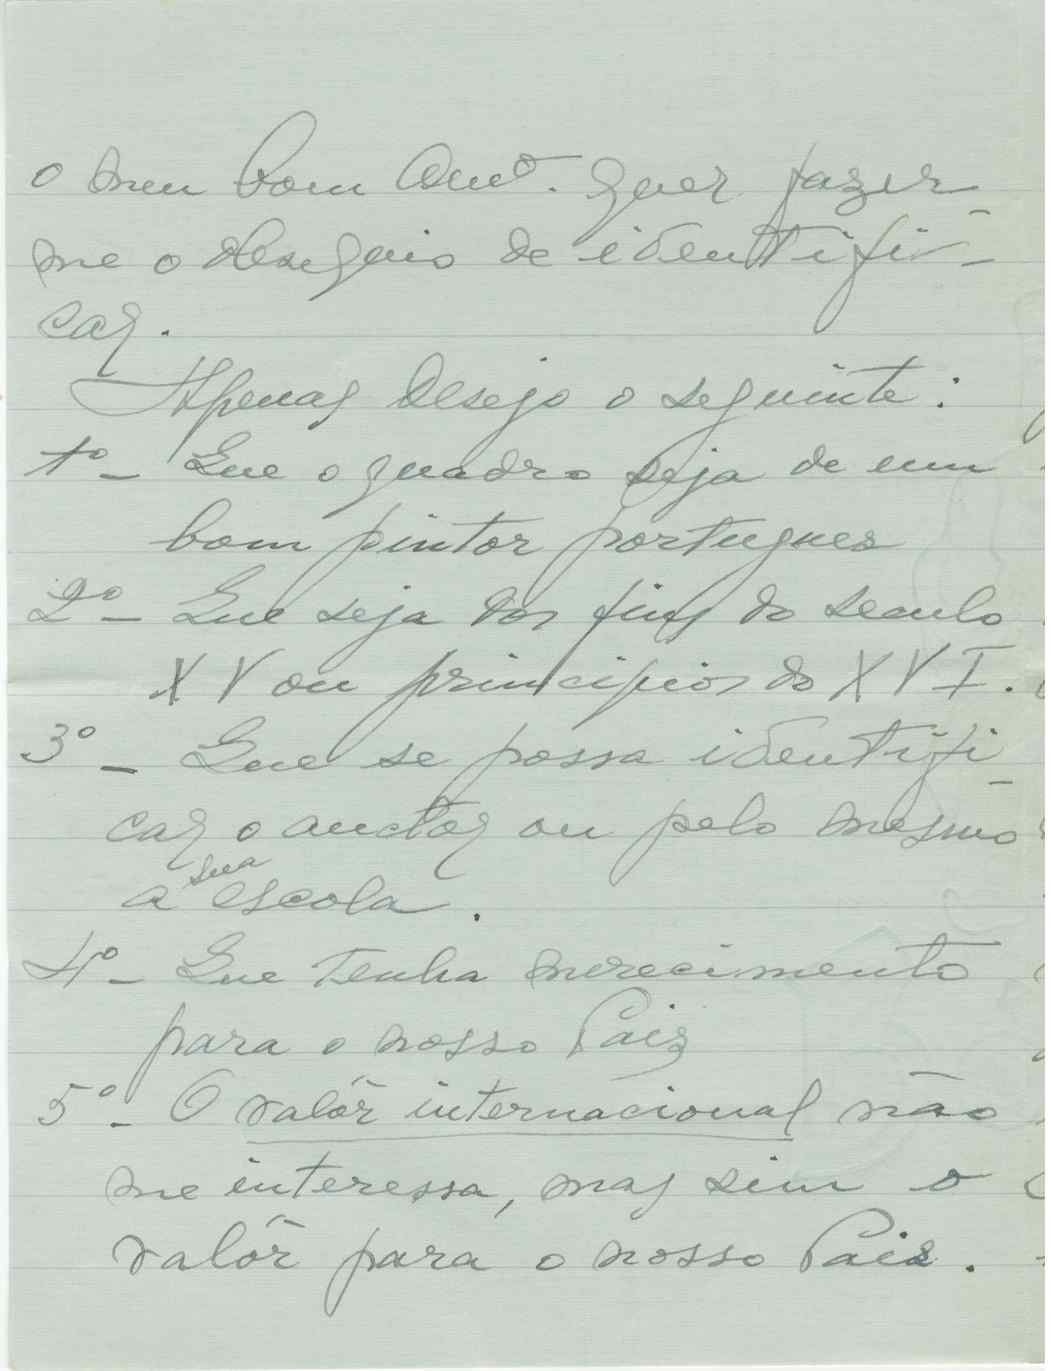 o meu bom Amº. quer fazer-
me o obsequio de identifi-
car.
Apenas desejo o seguinte:
1º - Que o quadro seja de um
bom pintor portugues
2º - Que seja dos fins do seculo
XV ou principios do XVI.
3º - Que se possa identifi-
car o auctor ou pelo mesmo
a sua escola.
4º - Que tenha merecimento
para o nosso Paiz
5º - O valôr internacional não
me interessa, mas sim o
valôr para o nosso Paiz.